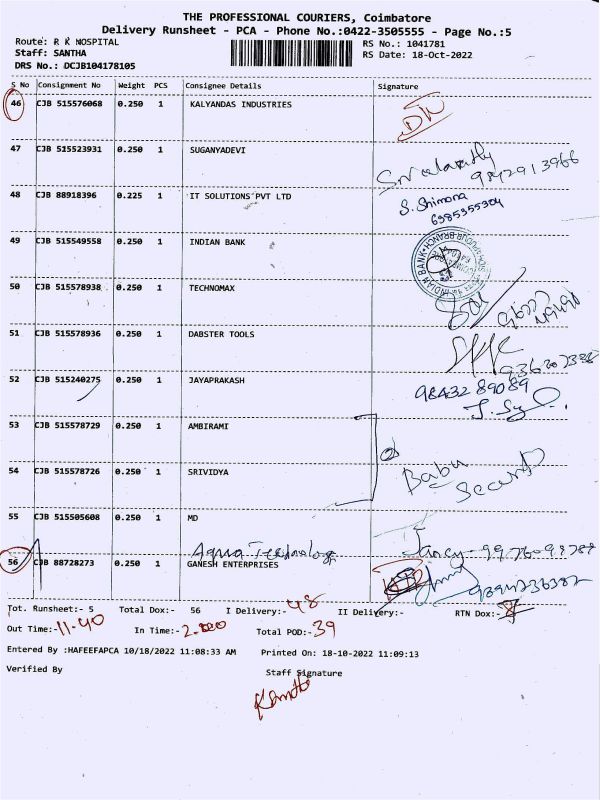 THE PROFESSIONAL COURIERS, Coimbatore
Delivery Runsheet - PCA - Phone No.:0422-3505555 - Page No.:5
Route: R K NOSPITAL
Staff: SANTHA
DRS No.: DCJB104178105
RS No.: 1041781
RS Date: 18-Oct-2022
S No Consignment No Weight PCS Consignee Details Signature
46 CJB 515576068 0.250 1 KALYANDAS INDUSTRIES
47 CJB 515523931 0.250 1 SUGANYADEVI
9842913966
48 CJB 88918396 0.225 1 IT SOLUTIONS PVT LTD S. Shimona
6385355304
49 CJB 515549558 0.250 1 INDIAN BANK
INDIAN BANK
50 CJB 515578938 0.250 1 TECHNOMAX
51 CJB 515578936 0.250 1 DABSTER TOOLS
52 CJB 515240275 0.250 1 JAYAPRAKASH 9843289089
53 CJB 515578729 0.250 1 AMBIRAMI
54 CJB 515578726 0.250 1 SRIVIDYA Babu
55 CJB 515505608 0.250 1 MD
Aqua Technology
56 CJB 88728273 0.250 1 GANESH ENTERPRISES
Tot. Runsheet:- 5 Total Dox:- 56 I Delivery:- 48 II Delivery:- RTN Dox:- 8
Out Time:- 11-40 In Time:- Total POD:- 39
Entered By :HAFEEFAPCA 10/18/2022 11:08:33 AM Printed On: 18-10-2022 11:09:13
Verified By Staff Signature